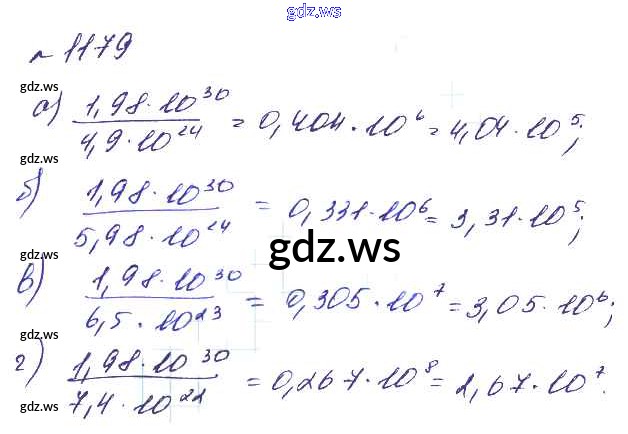 gdz.ws
№ 1179
gdz.ws
а) 1,98·10³⁰ / 4,9·10²⁴ = 0,404·10⁶ = 4,04·10⁵;
gdz.ws
б) 1,98·10³⁰ / 5,98·10²⁴ = 0,331·10⁶ = 3,31·10⁵;
gdz.ws
gdz.ws
в) 1,98·10³⁰ / 6,5·10²³ = 0,305·10⁷ = 3,05·10⁶;
gdz.ws
г) 1,98·10³⁰ / 7,4·10²² = 0,267·10⁸ = 2,67·10⁷.
gdz.ws